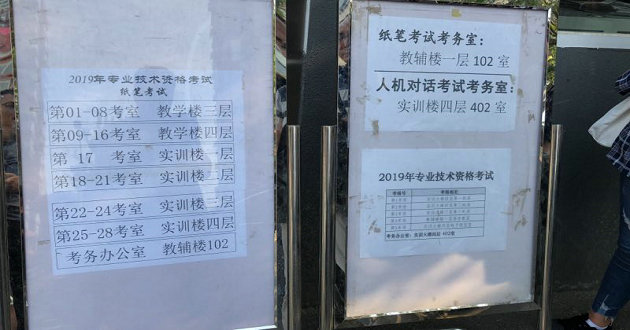 2019年专业技术资格考试
纸笔考试
第01-08考室 教学楼三层
第09-16考室 教学楼四层
第 17 考室 实训楼一层
第18-21考室 实训楼二层
第22-24考室 实训楼三层
第25-28考室 实训楼四层
考务办公室 教辅楼102
纸笔考试考务室:
教辅楼一层 102 室
人机对话考试考务室:
实训楼四层 402 室
2019年专业技术资格考试